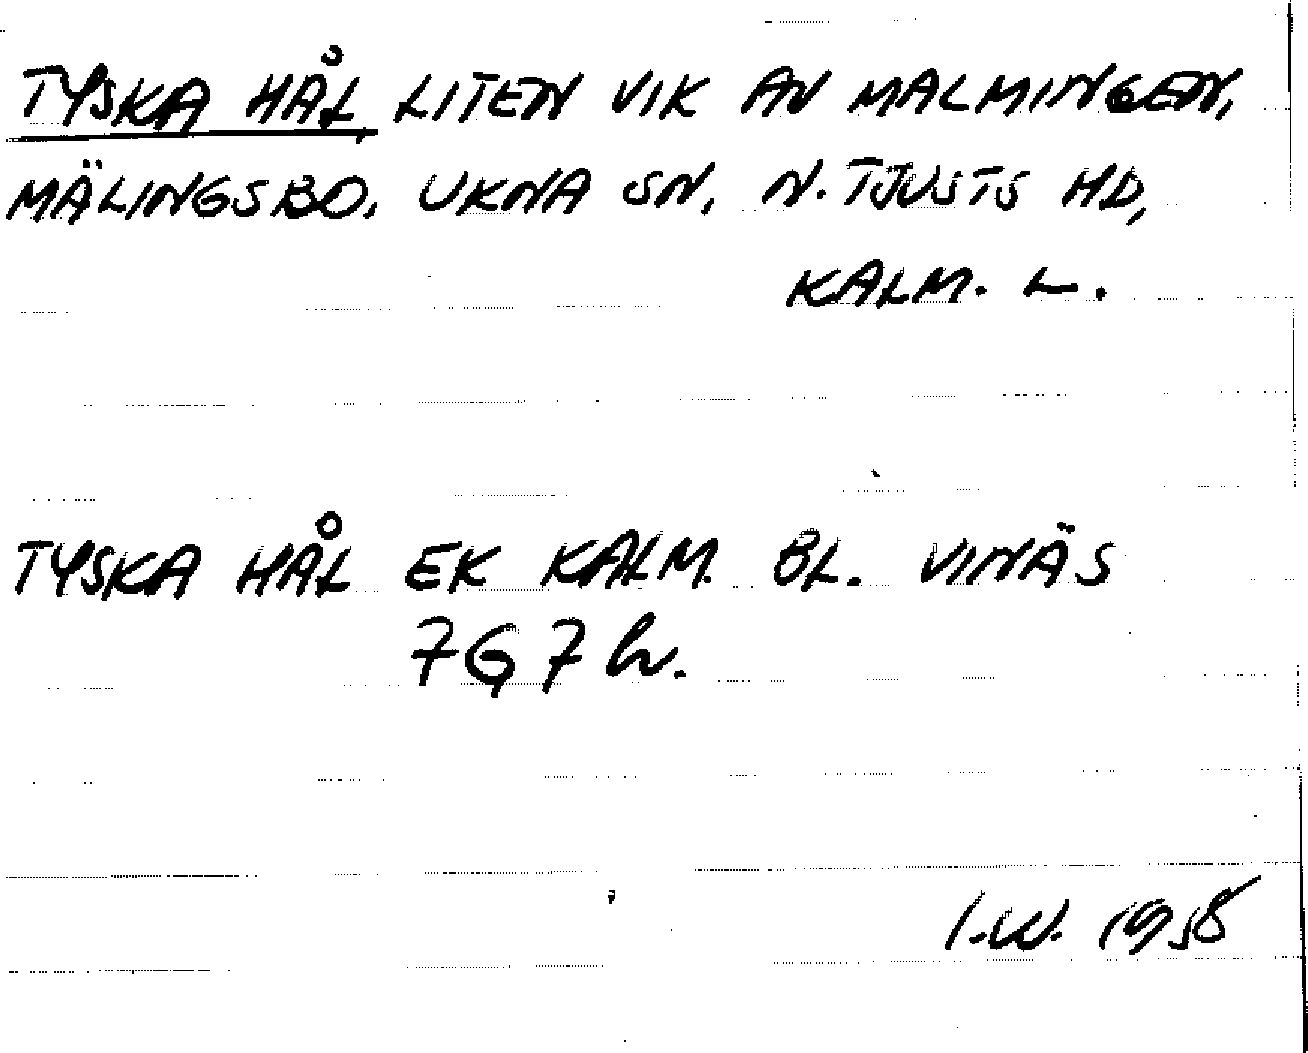 TYSKA HÅL, LITEN VIK AV MALMINGEN,
MÄLINGSBO, UKNA SN, N. TJUSTS HD,
KALM. L.
TYSKA HÅL EK KALM. BL. VINÄS
7G7h.
I.W. 1958